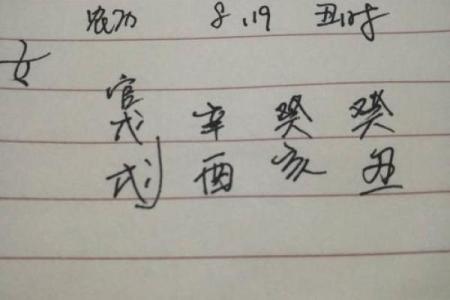 农历 8.19 丑时
女
官
戊 辛 癸 癸
戌 酉 亥 丑